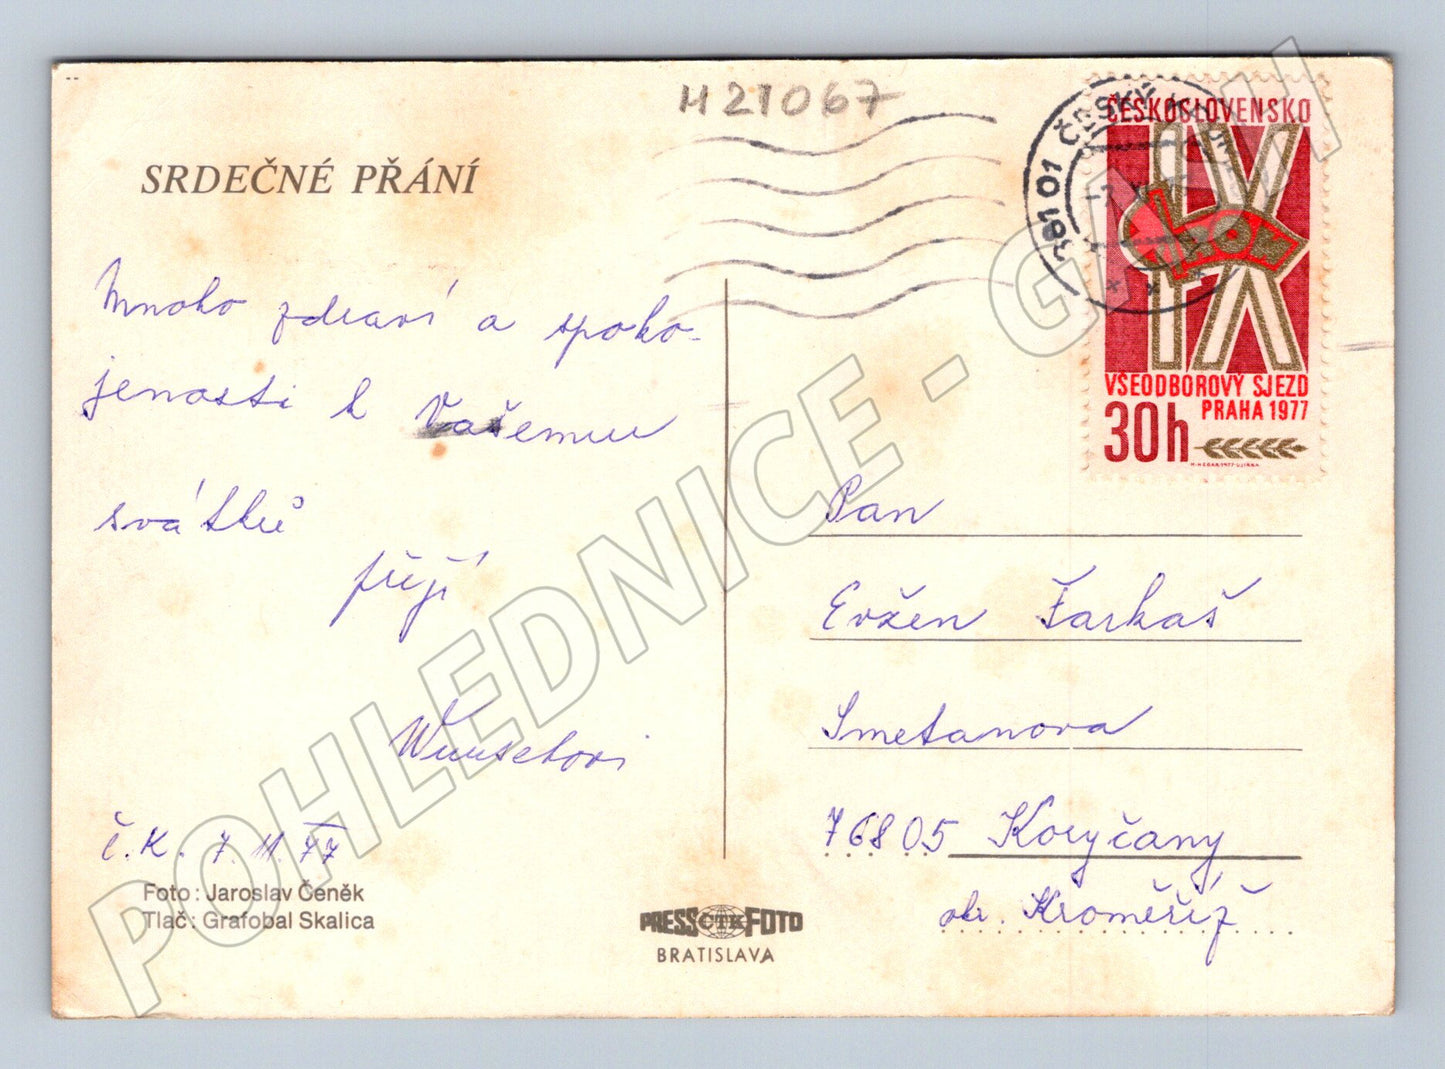 H21067
SRDEČNÉ PŘÁNÍ
Mnoho zdraví a spoko-
jenosti k Vašemu
svátku
přejí
Wunschovi
Č.K. 7.11.77
Foto: Jaroslav Čeněk
Tlač: Grafobal Skalica
PRESS ČTK FOTO
BRATISLAVA
381 01 ČESKÝ
ČESKOSLOVENSKO
IX
ROH
VŠEODBOROVÝ SJEZD
PRAHA 1977
30h
M. HEGAR 1977 - J. JIRKA
Pan
Evžen Farkaš
Smetanova
76805 Koryčany
okr. Kroměříž
POHLEDNICE - GMH